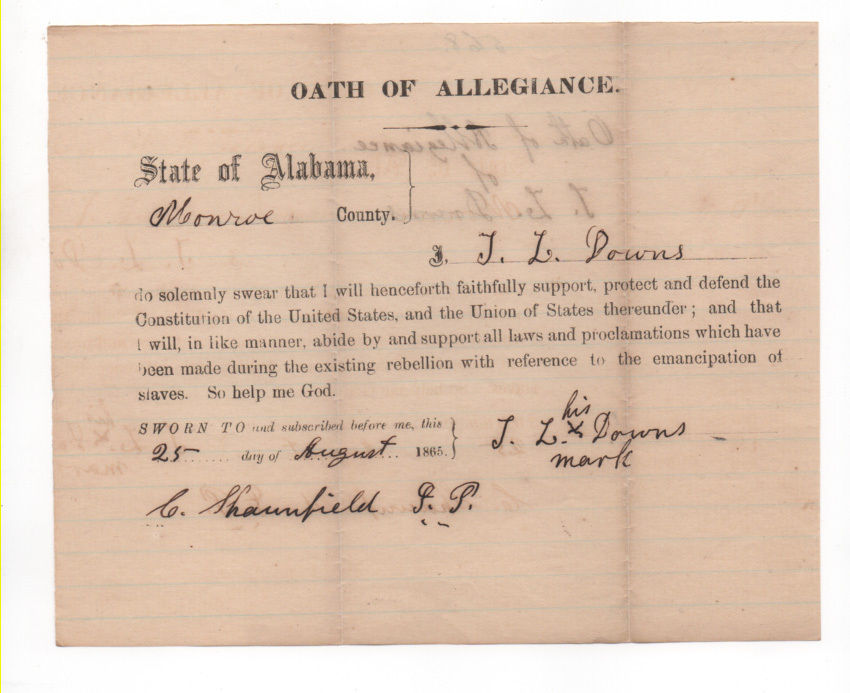 OATH OF ALLEGIANCE.
State of Alabama,
Monroe County.
I, J. L. Downs
do solemnly swear that I will henceforth faithfully support, protect and defend the
Constitution of the United States, and the Union of States thereunder; and that
I will, in like manner, abide by and support all laws and proclamations which have
been made during the existing rebellion with reference to the emancipation of
slaves. So help me God.
SWORN TO and subscribed before me, this
25 day of August 1865.
his
J. L. x Downs
mark
C. Shaunfield J. P.